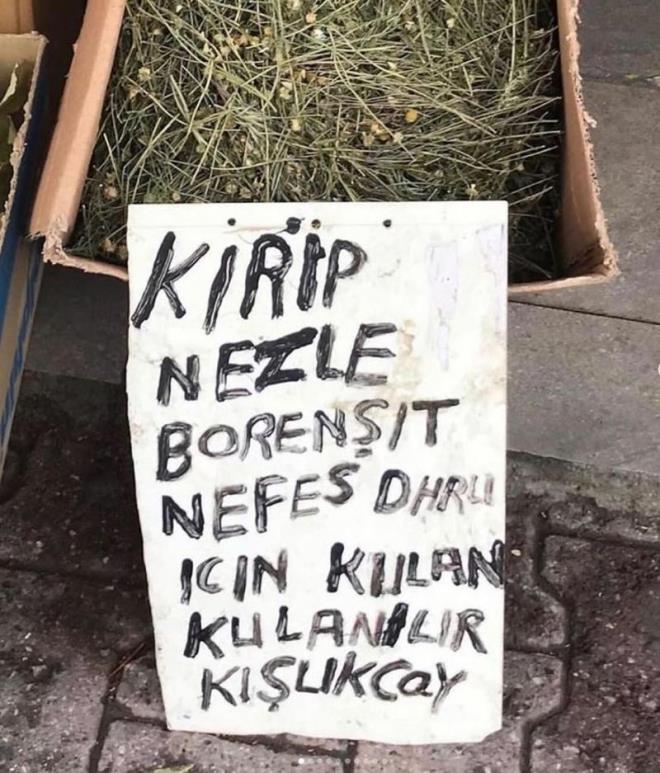 KIRIP
NEZLE
BORENŞIT
NEFES DHRLI
ICIN KULAN
KULANILIR
KIŞLIKCaY